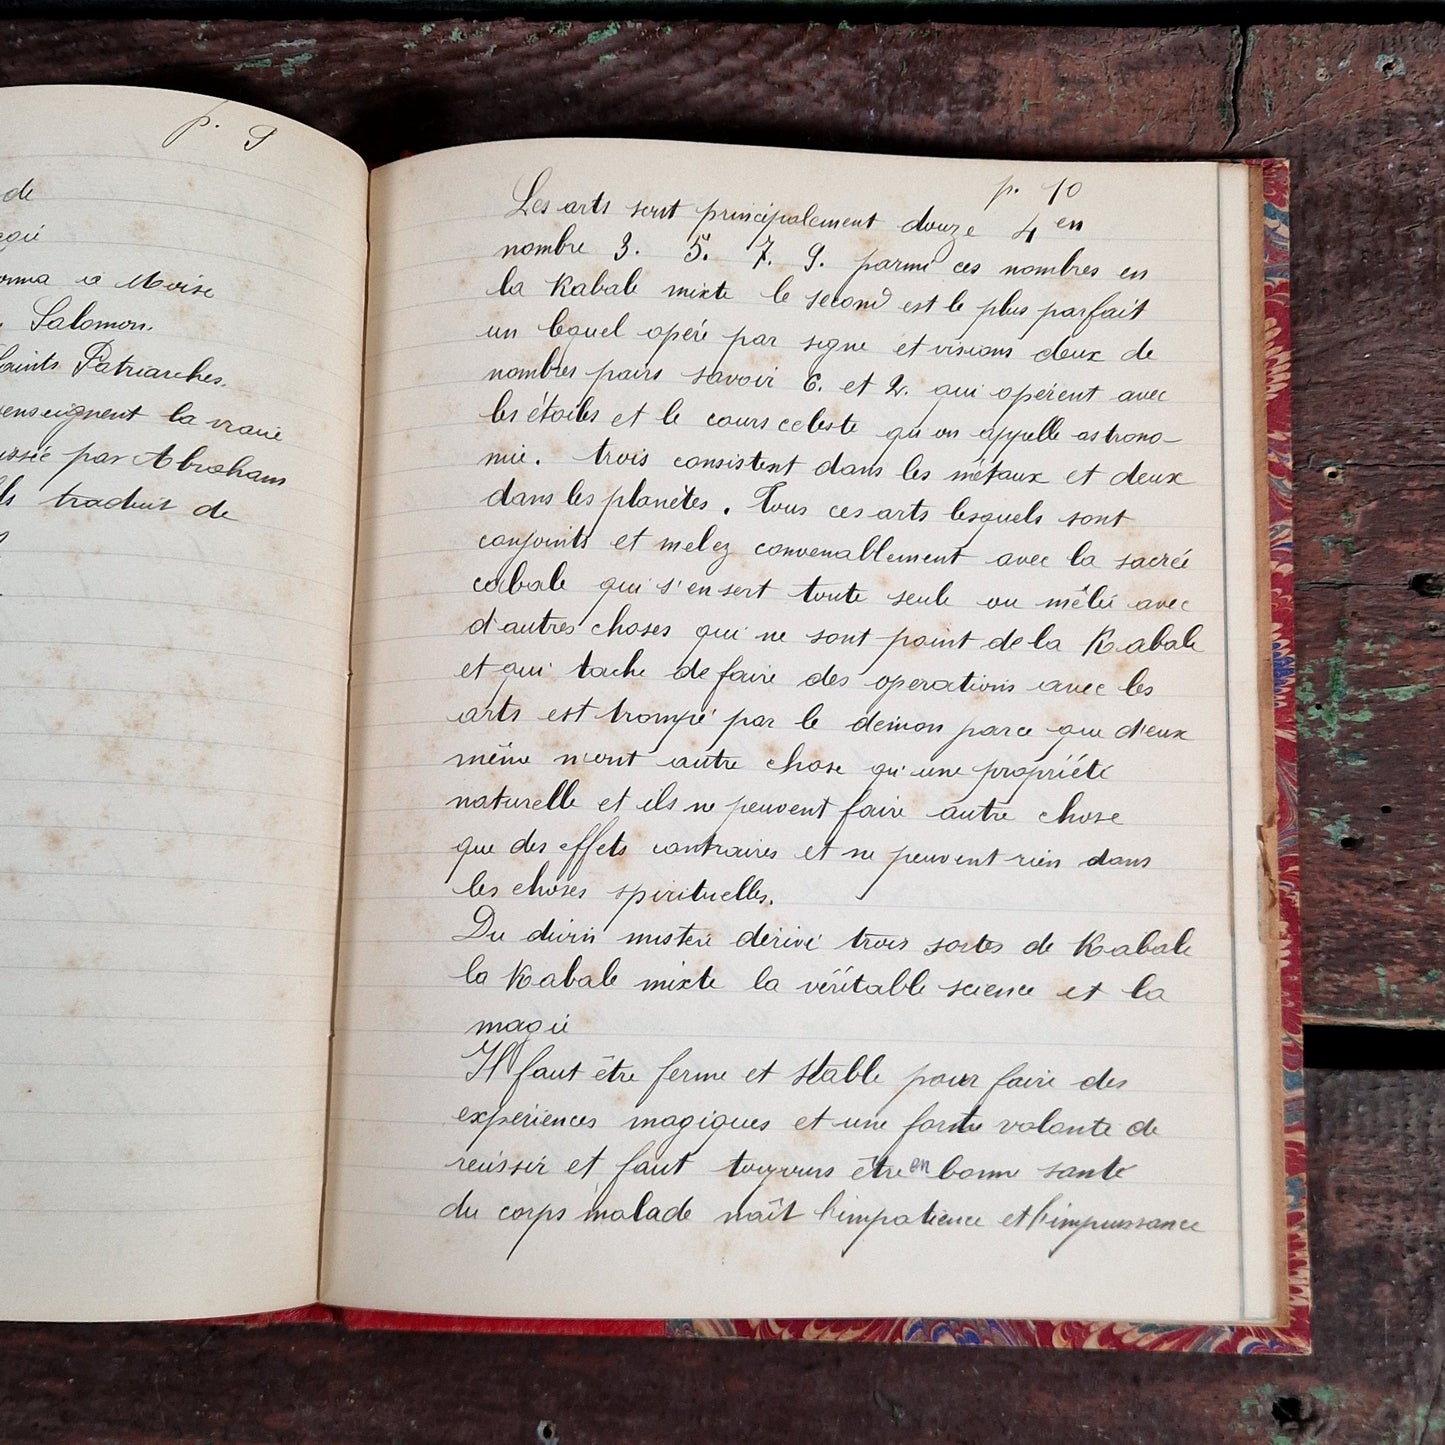 p. 9
de
Moise
Salomon.
Saints Patriarches.
enseignent la vraie
par Abraham
traduit de
p. 10
Les arts sont principalement douze 4 en
nombre 3. 5. 7. 9. parmi ces nombres en
la Kabale mixte le second est le plus parfait
un lequel opéré par signe et visions deux de
nombres pairs savoir 6. et 2. qui opérent avec
les étoiles et le cours celeste qu'on appelle astrono-
mie. trois consistent dans les métaux et deux
dans les planètes. Tous ces arts lesquels sont
conjoints et melez convenablement avec la sacrée
cabale qui s'en sert toute seule ou mêlée avec
d'autres choses qui ne sont point de la Kabale
et qui tache de faire des operations avec les
arts est trompé par le démon parce que d'eux
même n'ont autre chose qu'une propriété
naturelle et ils ne peuvent faire autre chose
que des effets contraires et ne peuvent rien dans
les choses spirituelles.
Du divin mistere dérive trois sortes de Kabale
la Kabale mixte la véritable science et la
magie
Il faut être ferme et stable pour faire des
expériences magiques et une forte volonté de
reussir et faut toujours être en bonne santé
du corps malade naît l'impatience et l'impuissance